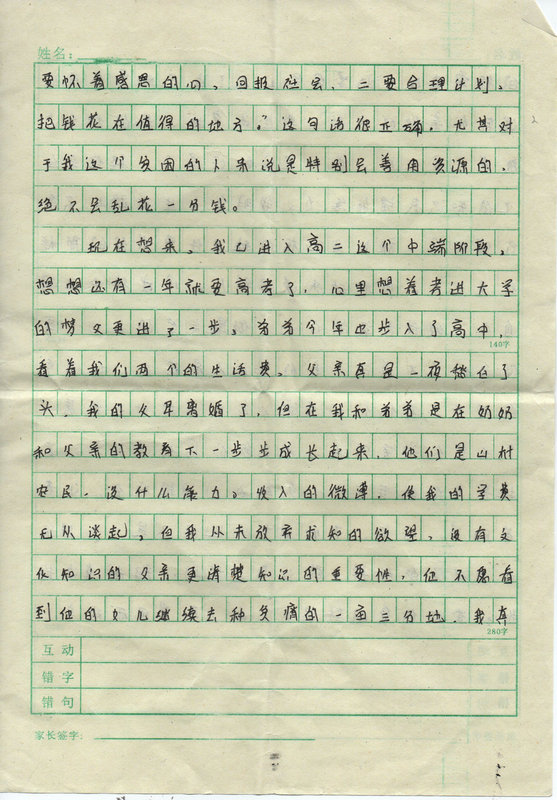 姓名：
2
要怀着感恩的心，回报社会，二要合理计划，
把钱花在值得的地方。”这句话很正确，尤其对
于我这个贫困的人来说是特别会善用资源的，
绝不会乱花一分钱。
现在想来，我已进入高二这个中端阶段，
想想还有一年就要高考了，心里想着考进大学
的梦又更进了一步，弟弟今年也步入了高中，
140字
看着我们两个的生活费，父亲真是一夜愁白了
头，我的父母离婚了，但在我和弟弟是在奶奶
和父亲的教育下一步步成长起来，他们是山村
农民，没什么能力。收入的微薄，使我的学费
无从谈起，但我从未放弃求知的欲望，没有文
化知识的父亲更清楚知识的重要性，他不愿看
到他的女儿继续去种贫瘠的一亩三分地，我真
280字
互动
错字
错句
家长签字：